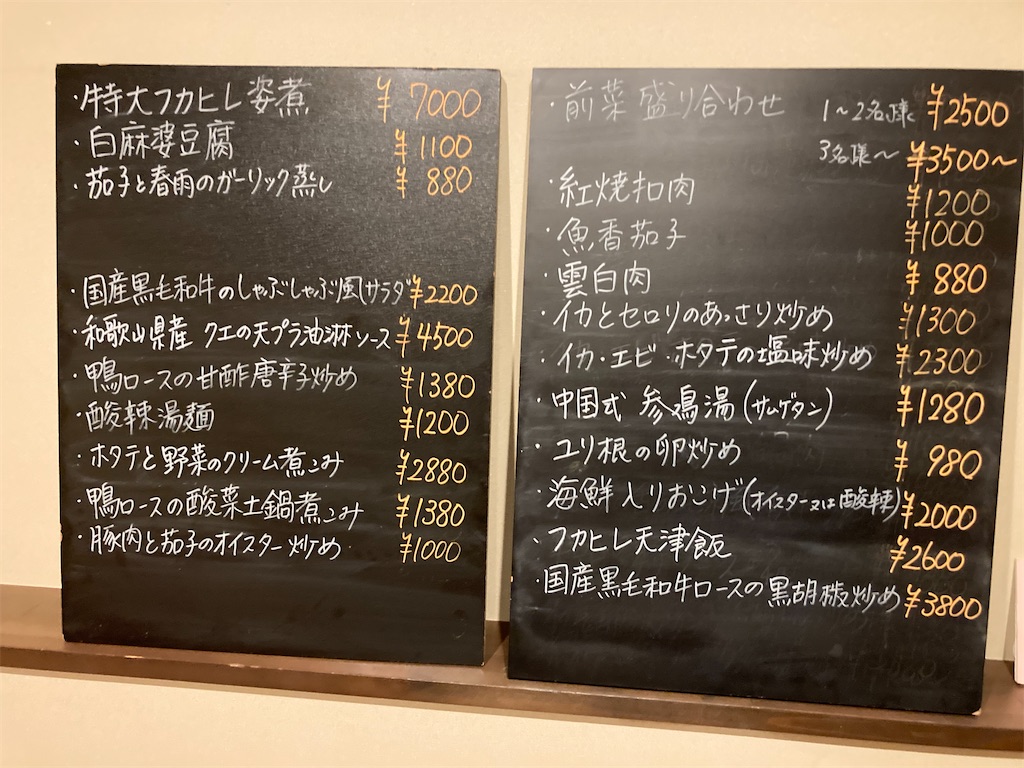 ・特大フカヒレ姿煮 ¥7000
・白麻婆豆腐 ¥1100
・茄子と春雨のガーリック蒸し ¥880
・国産黒毛和牛のしゃぶしゃぶ風サラダ ¥2200
・和歌山県産 クエの天プラ油淋ソース ¥4500
・鴨ロースの甘酢唐辛子炒め ¥1380
・酸辣湯麺 ¥1200
・ホタテと野菜のクリーム煮こみ ¥2880
・鴨ロースの酸菜土鍋煮こみ ¥1380
・豚肉と茄子のオイスター炒め ¥1000
・前菜盛り合わせ 1〜2名様 ¥2500
3名様〜 ¥3500〜
・紅焼扣肉 ¥1200
・魚香茄子 ¥1000
・雲白肉 ¥880
・イカとセロリのあっさり炒め ¥1300
・イカ・エビ・ホタテの塩味炒め ¥2300
・中国式 参鶏湯(サムゲタン) ¥1280
・ユリ根の卵炒め ¥980
・海鮮入りおこげ(オイスター又は酸辣) ¥2000
・フカヒレ天津飯 ¥2600
・国産黒毛和牛ロースの黒胡椒炒め ¥3800